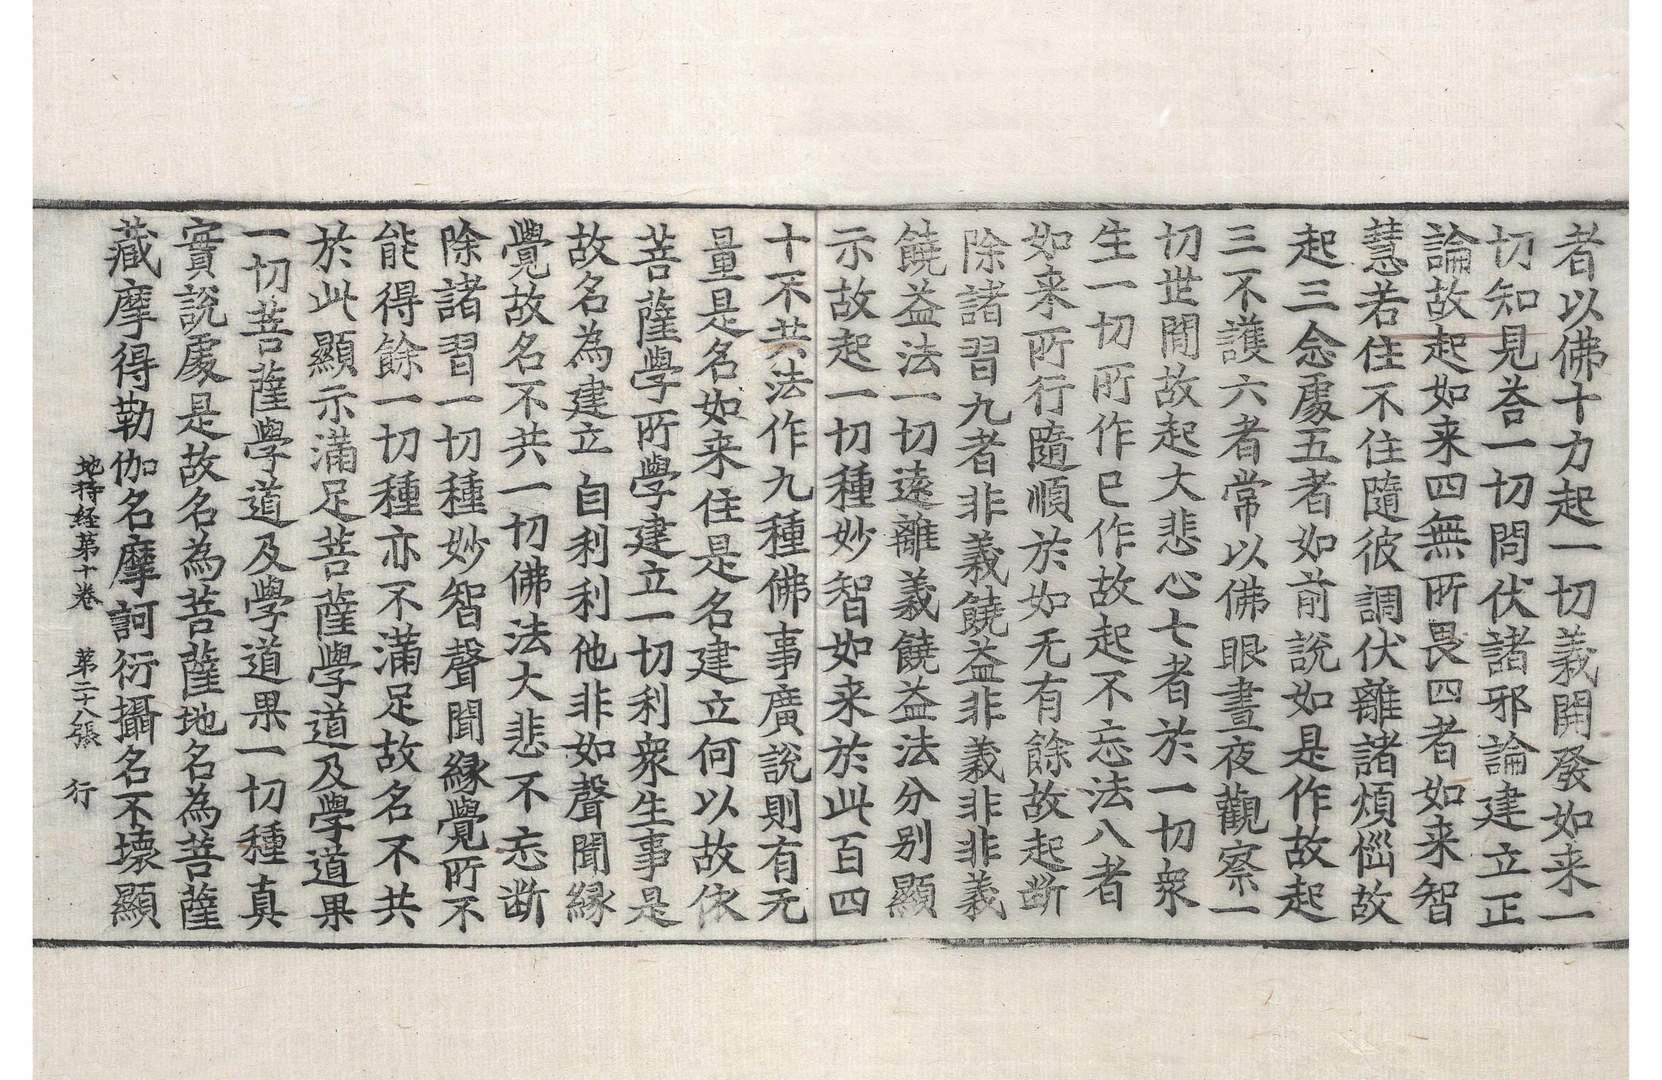 者以佛十力起一切義開發如来一
切知見荅一切問伏諸邪論建立正
論故起如来四無所畏四者如来智
慧若住不住隨彼調伏離諸煩惱故
起三念處五者如前說如是作故起
三不護六者常以佛眼晝夜觀察一
切世間故起大悲心七者於一切衆
生一切所作已作故起不忘法八者
如来所行隨順於如无有餘故起斷
除諸習九者非義饒益非義非非義
饒益法一切遠離義饒益法分别顯
示故起一切種妙智如来於此百四
十不共法作九種佛事廣說則有无
量是名如来住是名建立何以故依
菩薩學所學建立一切利衆生事是
故名為建立自利利他非如聲聞緣
覺故名不共一切佛法大悲不忘斷
除諸習一切種妙智聲聞緣覺所不
能得餘一切種亦不滿足故名不共
於此顯示滿足菩薩學道及學道果
一切菩薩學道及學道果一切種真
實說處是故名為菩薩地名為菩薩
藏摩得勒伽名摩訶衍攝名不壞顯
地持経苐十卷　苐二十八張　行